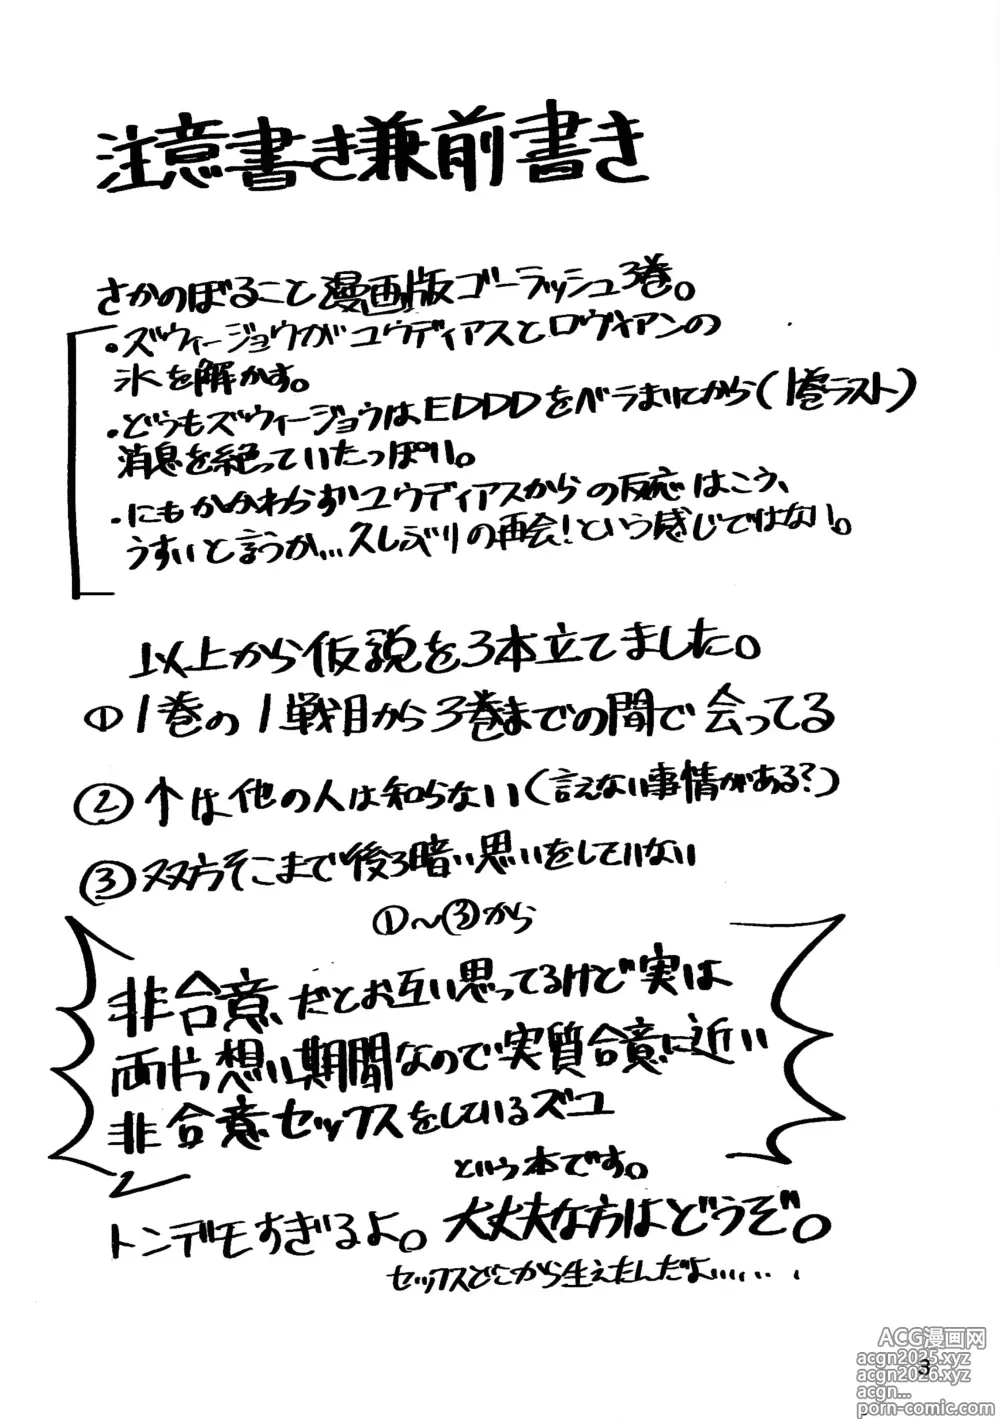 注意書き兼前書き
さかのぼること漫画版ゴーラッシュ3巻。
・ズウィージョウがユウディアスとロヴィアンの
氷を解かす。
・どうもズウィージョウはEDDDをベラまにてから(1巻ラスト)
消息を絶っていたっぽい。
・にもかかわらずユウディアスからの反応はこう、
うすいと言うか…久しぶりの再会!という感じではない。
以上から仮説を3本立てました。
①1巻の1戦目から3巻までの間で会ってる
②↑は他の人は知らない(言えない事情がある?)
③双方そこまで後ろ暗い思いをしていない
①〜③から
非合意だとお互い思ってるけど実は
両片想い期間なので実質合意に近い
非合意セックスをしているズユ
という本です。
トンデモすぎるよ。大丈夫な方はどうぞ。
セックスどこから生えたんだよ……
ACG漫画网
acgn2025.xyz
acgn2026.xyz
acgn...
porn-comic.com
3